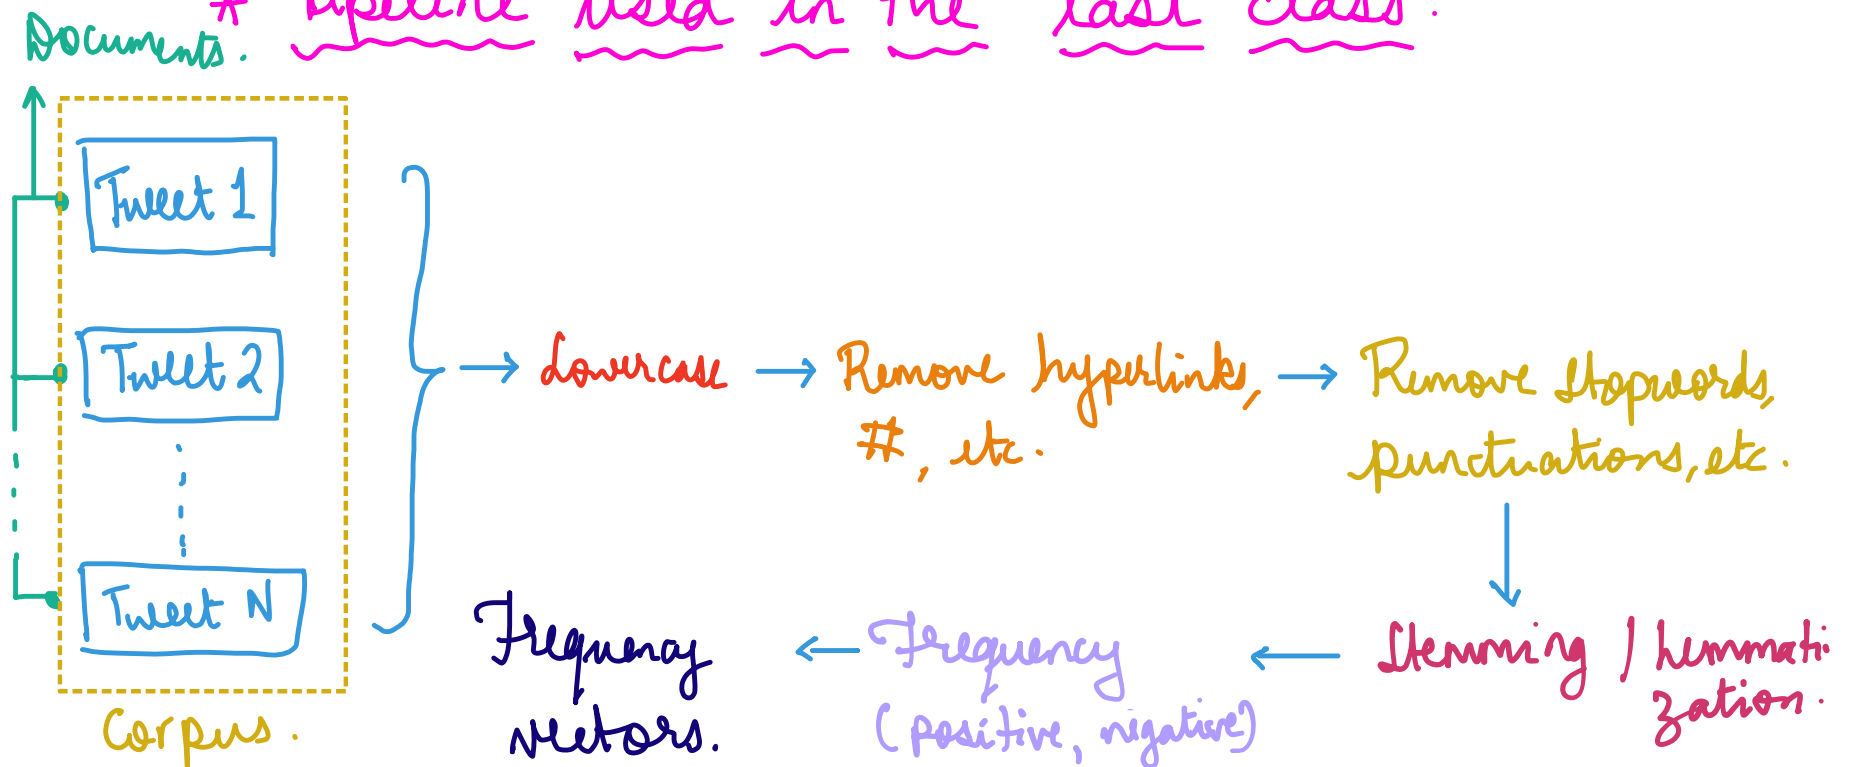 * Pipeline used in the last class.
Documents.
Tweet 1
Tweet 2
Tweet N
Corpus.
Lowercase
Remove hyperlinks,
#, etc.
Remove stopwords,
punctuations, etc.
Stemming / Lemmati
zation.
Frequency
(positive, negative)
Frequency
vectors.